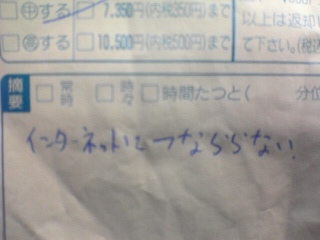 ㊥する 7,350円(内税350円)まで 以上は返却し
㊥する 10,500円(内税500円)まで て下さい。(税込
摘要 常時 時々 時間たつと( 分位
インターネットにつなららない!